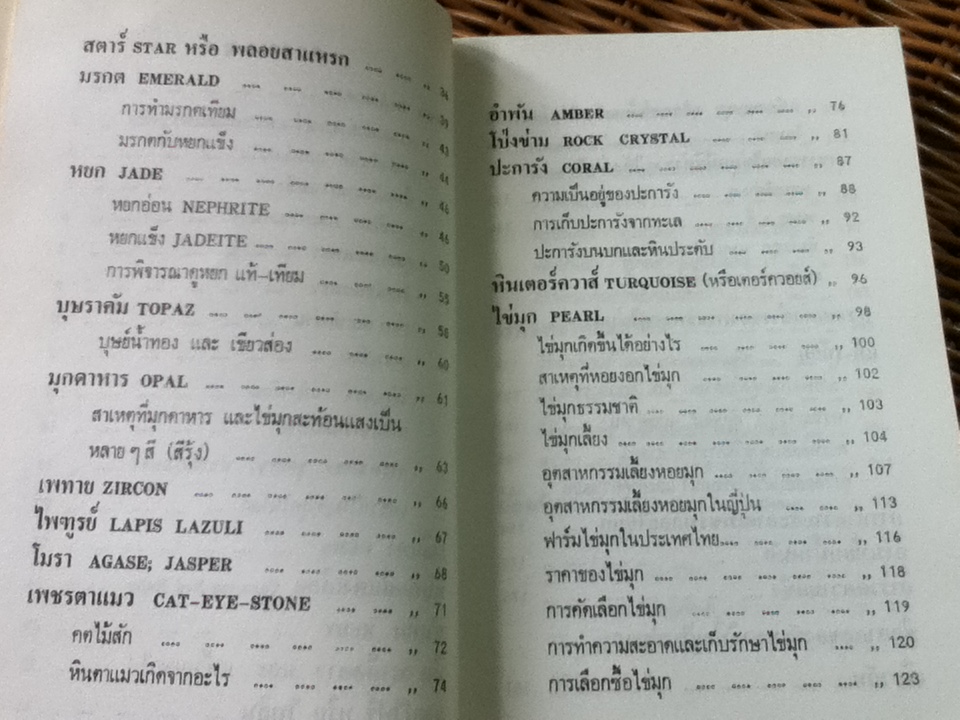 สตาร์ STAR หรือ พลอยสาแหรก .... .... ,, 36
มรกต EMERALD .... .... .... .... ,, 39
การทำมรกตเทียม .... .... .... .... ,, 43
มรกตกับหยกแข็ง .... .... .... .... ,, 44
หยก JADE .... .... .... .... .... ,, 46
หยกอ่อน NEPHRITE .... .... .... ,, 46
หยกแข็ง JADEITE .... .... .... .... ,, 50
การพิจารณาดูหยก แท้-เทียม .... .... .... ,, 58
บุษราคัม TOPAZ .... .... .... .... .... ,, 58
บุษย์น้ำทอง และ เขียวส่อง .... .... .... ,, 60
มุกดาหาร OPAL .... .... .... .... .... ,, 61
สาเหตุที่มุกดาหาร และไข่มุกสะท้อนแสงเป็น
หลาย ๆ สี (สีรุ้ง) .... .... .... .... .... ,, 63
เพทาย ZIRCON .... .... .... .... .... .... ,, 66
ไพฑูรย์ LAPIS LAZULI .... .... .... .... ,, 67
โมรา AGASE; JASPER .... .... .... .... ,, 68
เพชรตาแมว CAT-EYE-STONE .... .... ,, 71
คตไม้สัก .... .... .... .... .... .... ,, 72
หินตาแมวเกิดจากอะไร .... .... .... .... ,, 74
อำพัน AMBER .... .... .... .... .... ,, 76
โป่งข่าม ROCK CRYSTAL .... .... .... ,, 81
ปะการัง CORAL .... .... .... .... .... ,, 87
ความเป็นอยู่ของปะการัง .... .... .... .... ,, 88
การเก็บปะการังจากทะเล .... .... .... .... ,, 92
ปะการังบนบกและหินประดับ .... .... .... ,, 93
หินเตอร์ควาส์ TURQUOISE (หรือเตอร์ควอยส์) ,, 96
ไข่มุก PEARL .... .... .... .... .... .... ,, 98
ไข่มุกเกิดขึ้นได้อย่างไร .... .... .... .... ,, 100
สาเหตุที่หอยงอกไข่มุก .... .... .... .... ,, 102
ไข่มุกธรรมชาติ .... .... .... .... .... ,, 103
ไข่มุกเลี้ยง .... .... .... .... .... .... ,, 104
อุตสาหกรรมเลี้ยงหอยมุก .... .... .... .... ,, 107
อุตสาหกรรมเลี้ยงหอยมุกในญี่ปุ่น .... .... ,, 113
ฟาร์มไข่มุกในประเทศไทย .... .... .... .... ,, 116
ราคาของไข่มุก .... .... .... .... .... ,, 118
การคัดเลือกไข่มุก .... .... .... .... .... ,, 119
การทำความสะอาดและเก็บรักษาไข่มุก .... ,, 120
การเลือกซื้อไข่มุก .... .... .... .... .... ,, 123